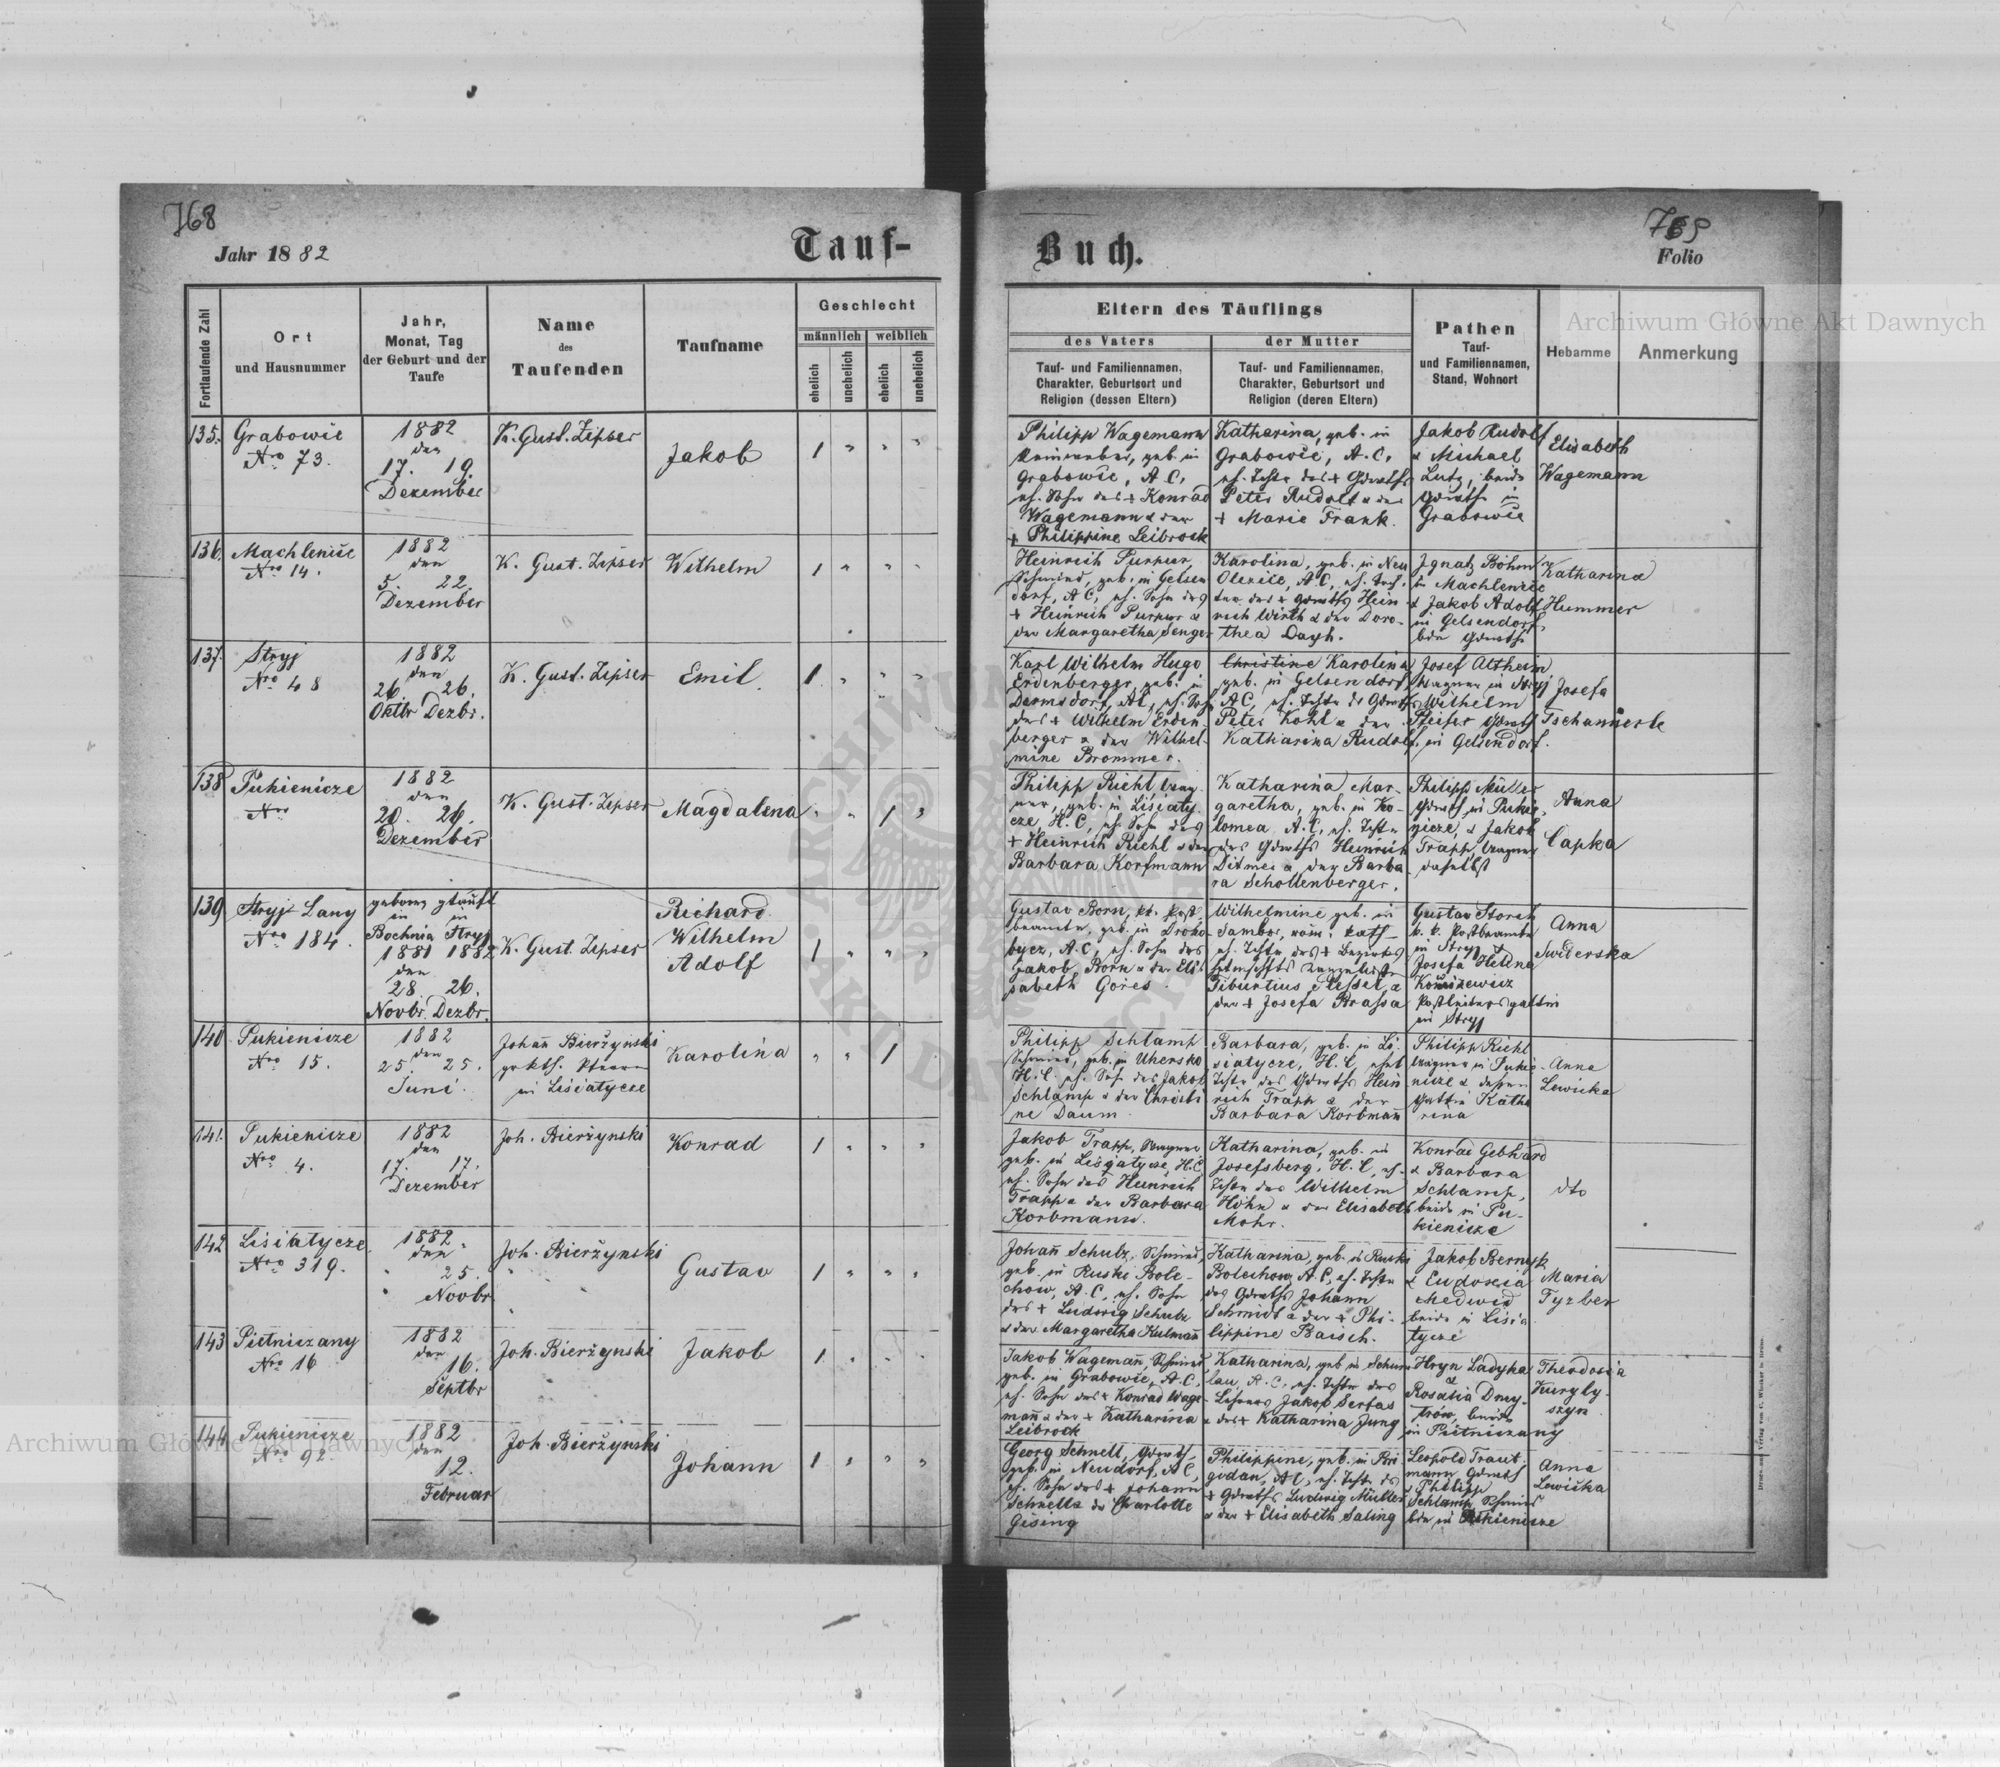 768
Jahr 1882
Tauf-
Buch.
769
Folio
Archiwum Główne Akt Dawnych
Fortlaufende Zahl
Ort
und Hausnummer
Jahr,
Monat, Tag
der Geburt und der
Taufe
Name
des
Taufenden
Taufname
Geschlecht
männlich
weiblich
ehelich
unehelich
ehelich
unehelich
Eltern des Täuflings
des Vaters
der Mutter
Tauf- und Familiennamen,
Charakter, Geburtsort und
Religion (dessen Eltern)
Tauf- und Familiennamen,
Charakter, Geburtsort und
Religion (deren Eltern)
Pathen
Tauf-
und Familiennamen,
Stand, Wohnort
Hebamme
Anmerkung
135.
Grabowie
Nro 73.
1882
den
17. 19.
Dezember
K. Gust. Zipser
Jakob
1 " " "
Philipp Wagemann
geb. in
Grabowie, A. C.
eh. Sohn des + Konrad
Wagemann & der
+ Philippine Leibrock
Katharina, geb. in
Grabowie, A. C.
Peter Rudolf & der
+ Marie Frank.
Jakob Rudolf
& Michael
Lutz, beide
in
Grabowie
Elisabeth
Wagemann
136.
Machlenice
Nro 14.
1882
den
5. 22.
Dezember
K. Gust. Zipser
Wilhelm
1 " " "
Heinrich Purpur,
Schmied, geb. in Gelsen
dorf, A C, eh. Sohn des
+ Heinrich Purpur &
der Margaretha Senger
Karolina, geb. in Neu
Olexice, A C, eh. Toch.
ter des + Hein
rich Wirth & der Doro-
thea Dayh.
Ignatz Böhm
in Machlenice
& Jakob Adolf
in Gelsendorf,
Katharina
Hummer
137.
Stryj
Nro 48
1882
den
26. 26.
Oktbr Dezbr.
K. Gust. Zipser
Emil
1 " " "
Karl Wilhelm Hugo
Erdenberger, geb. in
Dermsdorf, AC, eh. Sohn
des + Wilhelm Erden
berger & der Wilhel-
mine Brommer.
Christine Karolina
geb. in Gelsendorf
Peter Kohl & der
Katharina Rudolf
Josef Altheim
Wagner in Stryj
Wilhelm
Pfeifer
in Gelsendorf.
Josefa
Tschannerle
138
Pukienicze
Nro
1882
den
20. 26.
Dezember
K. Gust. Zipser
Magdalena
" " 1 "
Philipp Riehl Wag
ner, geb. in Lisiaty
cze, H. C, eh. Sohn des
+ Heinrich Riehl & der
Barbara Korfmann
Katharina Mar-
garetha, geb. in Ko-
lomea, A. C,
des Heinrich
Ditmer & der Barba
ra Schollenberger.
Philipp Müller
in Pukie
nicze, & Jakob
Trapp, Wagner
daselbst
Anna
Capka
139
Stryj Lany
Nro 184.
geboren getauft
in in
Bochnia Stryj
1881 1882
den
28. 26.
Novbr. Dezbr.
K. Gust. Zipser
Richard
Wilhelm
Adolf
1 " " "
Gustav Born, Post-
beamter, geb. in Droho
bycz, A. C, eh. Sohn des
Jakob Born & der Eli-
sabeth Gores.
Wilhelmine geb. in
Sambor, röm. kath-
Tiburtius &
der + Josefa Brassa
Gustav Storch
k. k. Postbeamter
in Stryj &
Josefa Helena
in Stryj
Anna
Swiderska
140
Pukienicze
Nro 15.
1882
den
25. 25.
Juni.
Johann Bierżynski
Pfarrer
in Lisiatycze
Karolina
" " 1 "
Philipp Schlamp
Schmied, geb. in Uhersko
H. C. eh. Sohn des Jakob
Schlamp & der Christi
ne Daum.
Barbara, geb. in Li
siatycze, H. C,
des Hein
rich Trapp & der
Barbara Korbmann
Philipp Riehl
Wagner in Pukie-
nicze & dessen
Gattin Katha
rina
Anna
Lewicka
141.
Pukienicze
Nro 4.
1882
den
17. 17.
Dezember
Joh. Bierżynski
Konrad
1 " " "
Jakob Trapp, Wagner
geb. in Lisiatycze, H. C.
eh. Sohn des Heinrich
Trapp & der Barbara
Korbmann.
Katharina, geb. in
Josefsberg, H. C, eh.
Tochter des Wilhelm
Höhn & der Elisabeth
Mohr.
Konrad Gebhard
& Barbara
Schlamp,
beide in Pu-
kienicze
dto
142
Lisiatycze
Nro 319.
1882
den
25.
Novbr
Joh. Bierżynski
Gustav
1 " " "
Johann Schulz, Schmied,
geb. in Ruski Bole-
chow, A. C, eh. Sohn
des + Ludwig Schulz
& der Margaretha Kulmann
Katharina, geb. in Ruski
Bolechow, A. C, eh. Tochter
des Johann
Schmidt & der + Phi-
lippine Baisch.
Jakob
& Eudoxia
Medwid
beide in Lisia
tycze
Maria
Tyrber
143
Pietniczany
Nro 16
1882
den
16.
Septbr
Joh. Bierżynski
Jakob
1 " " "
Jakob Wagemann, Schmied
geb. in Grabowie, A. C.
eh. Sohn des + Konrad Wage
mann & der + Katharina
Leibrock
Katharina, geb in Schum
lau, A. C, eh. Tochter des
Lehrers Jakob Serfas
& der + Katharina Jung
Hryn Ladyka
&
Rosalia Dmy-
trów, beide
in Pietniczany
Theodosia
Kuryly-
szyn
144
Pukienicze
Nro 92.
1882
den
12.
Februar
Joh. Bierżynski
Johann
1 " " "
Georg Schnell,
geb. in Neudorf, A C,
eh. Sohn des + Johann
Schnell & der Charlotte
Gising
Philippine, geb. in Bri
gidau, A C, eh. Tochter des
+ Ludwig Müller
& der + Elisabeth Saling
Leopold Traut
mann
& Philipp
Schlamp Schmied
beide in Pukienicze
Anna
Lewicka
Archiwum Główne Akt Dawnych